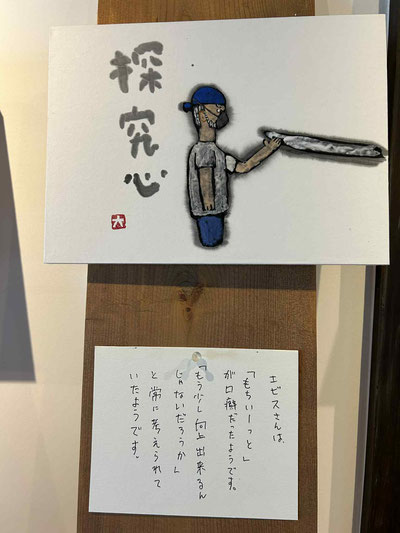 探究心
六
エビスさんは、
「もちぃーっと」
が口癖だったようです。
「もう少し向上出来るん
じゃないだろうか」
と常に考えられて
いたようです。